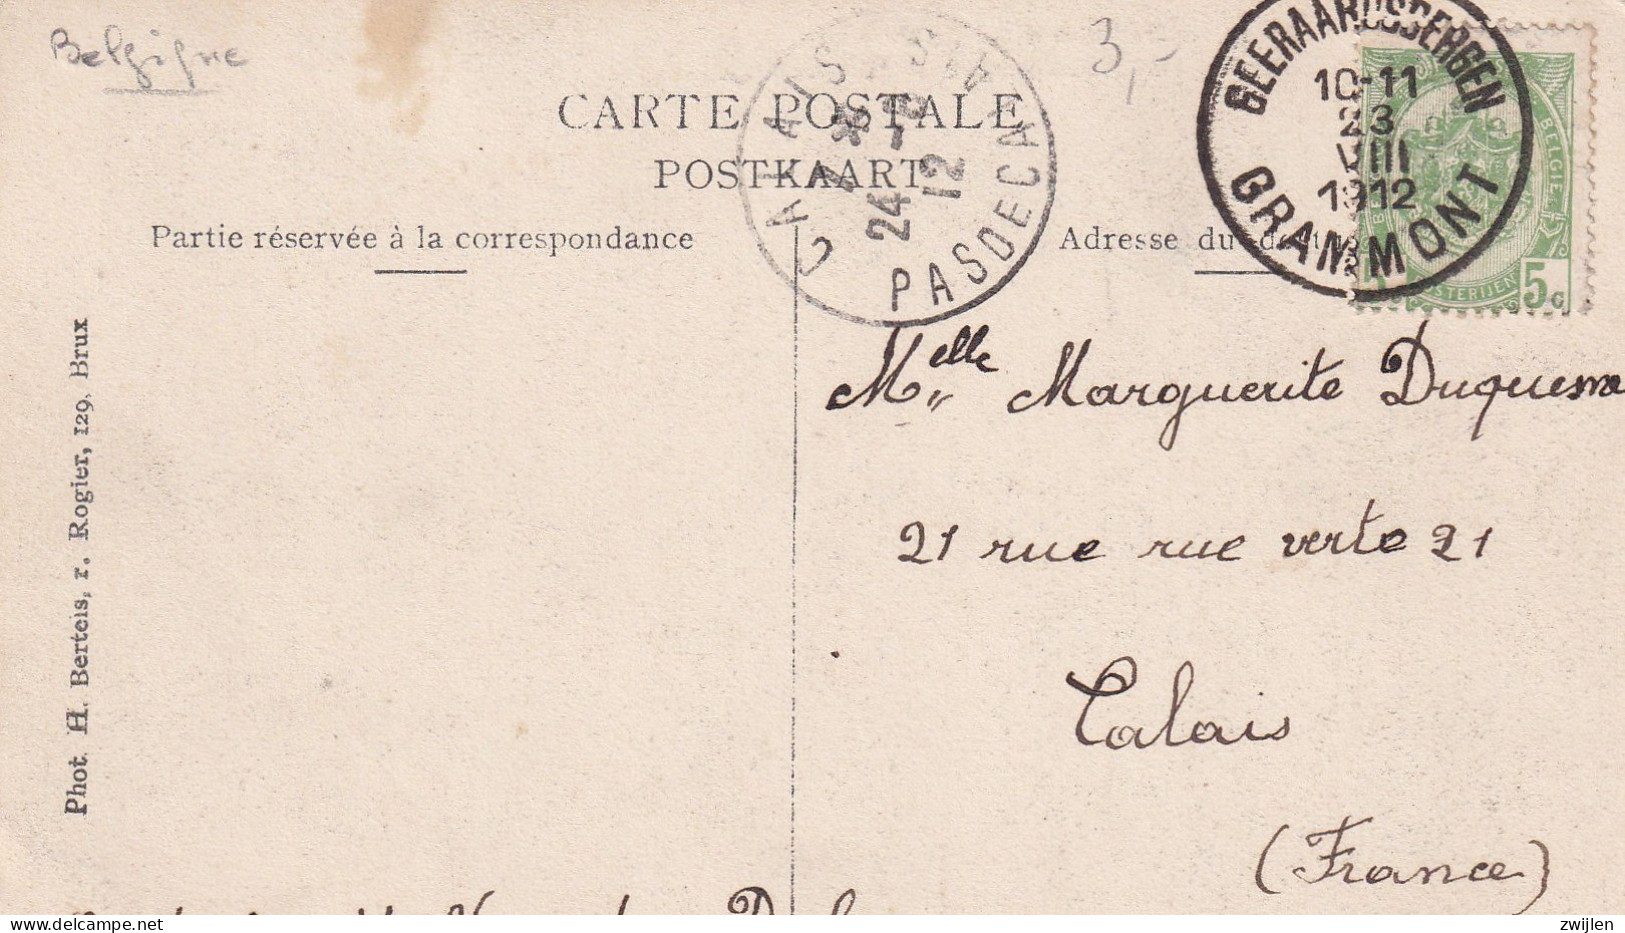 Belgique
3,-
CARTE POSTALE
POSTKAART
Partie réservée à la correspondance
Adresse du
CALAIS
7
24 -8
12
PAS DE CALAIS
GEERAARDSBERGEN
10-11
23
VIII
1912
GRAMMONT
BELGIE
5c
Melle Marguerite Duquesne
21 rue rue verte 21
Calais
(France)
Phot. H. Bertels, r. Rogier, 129. Brux
delcampe.net
zwijlen